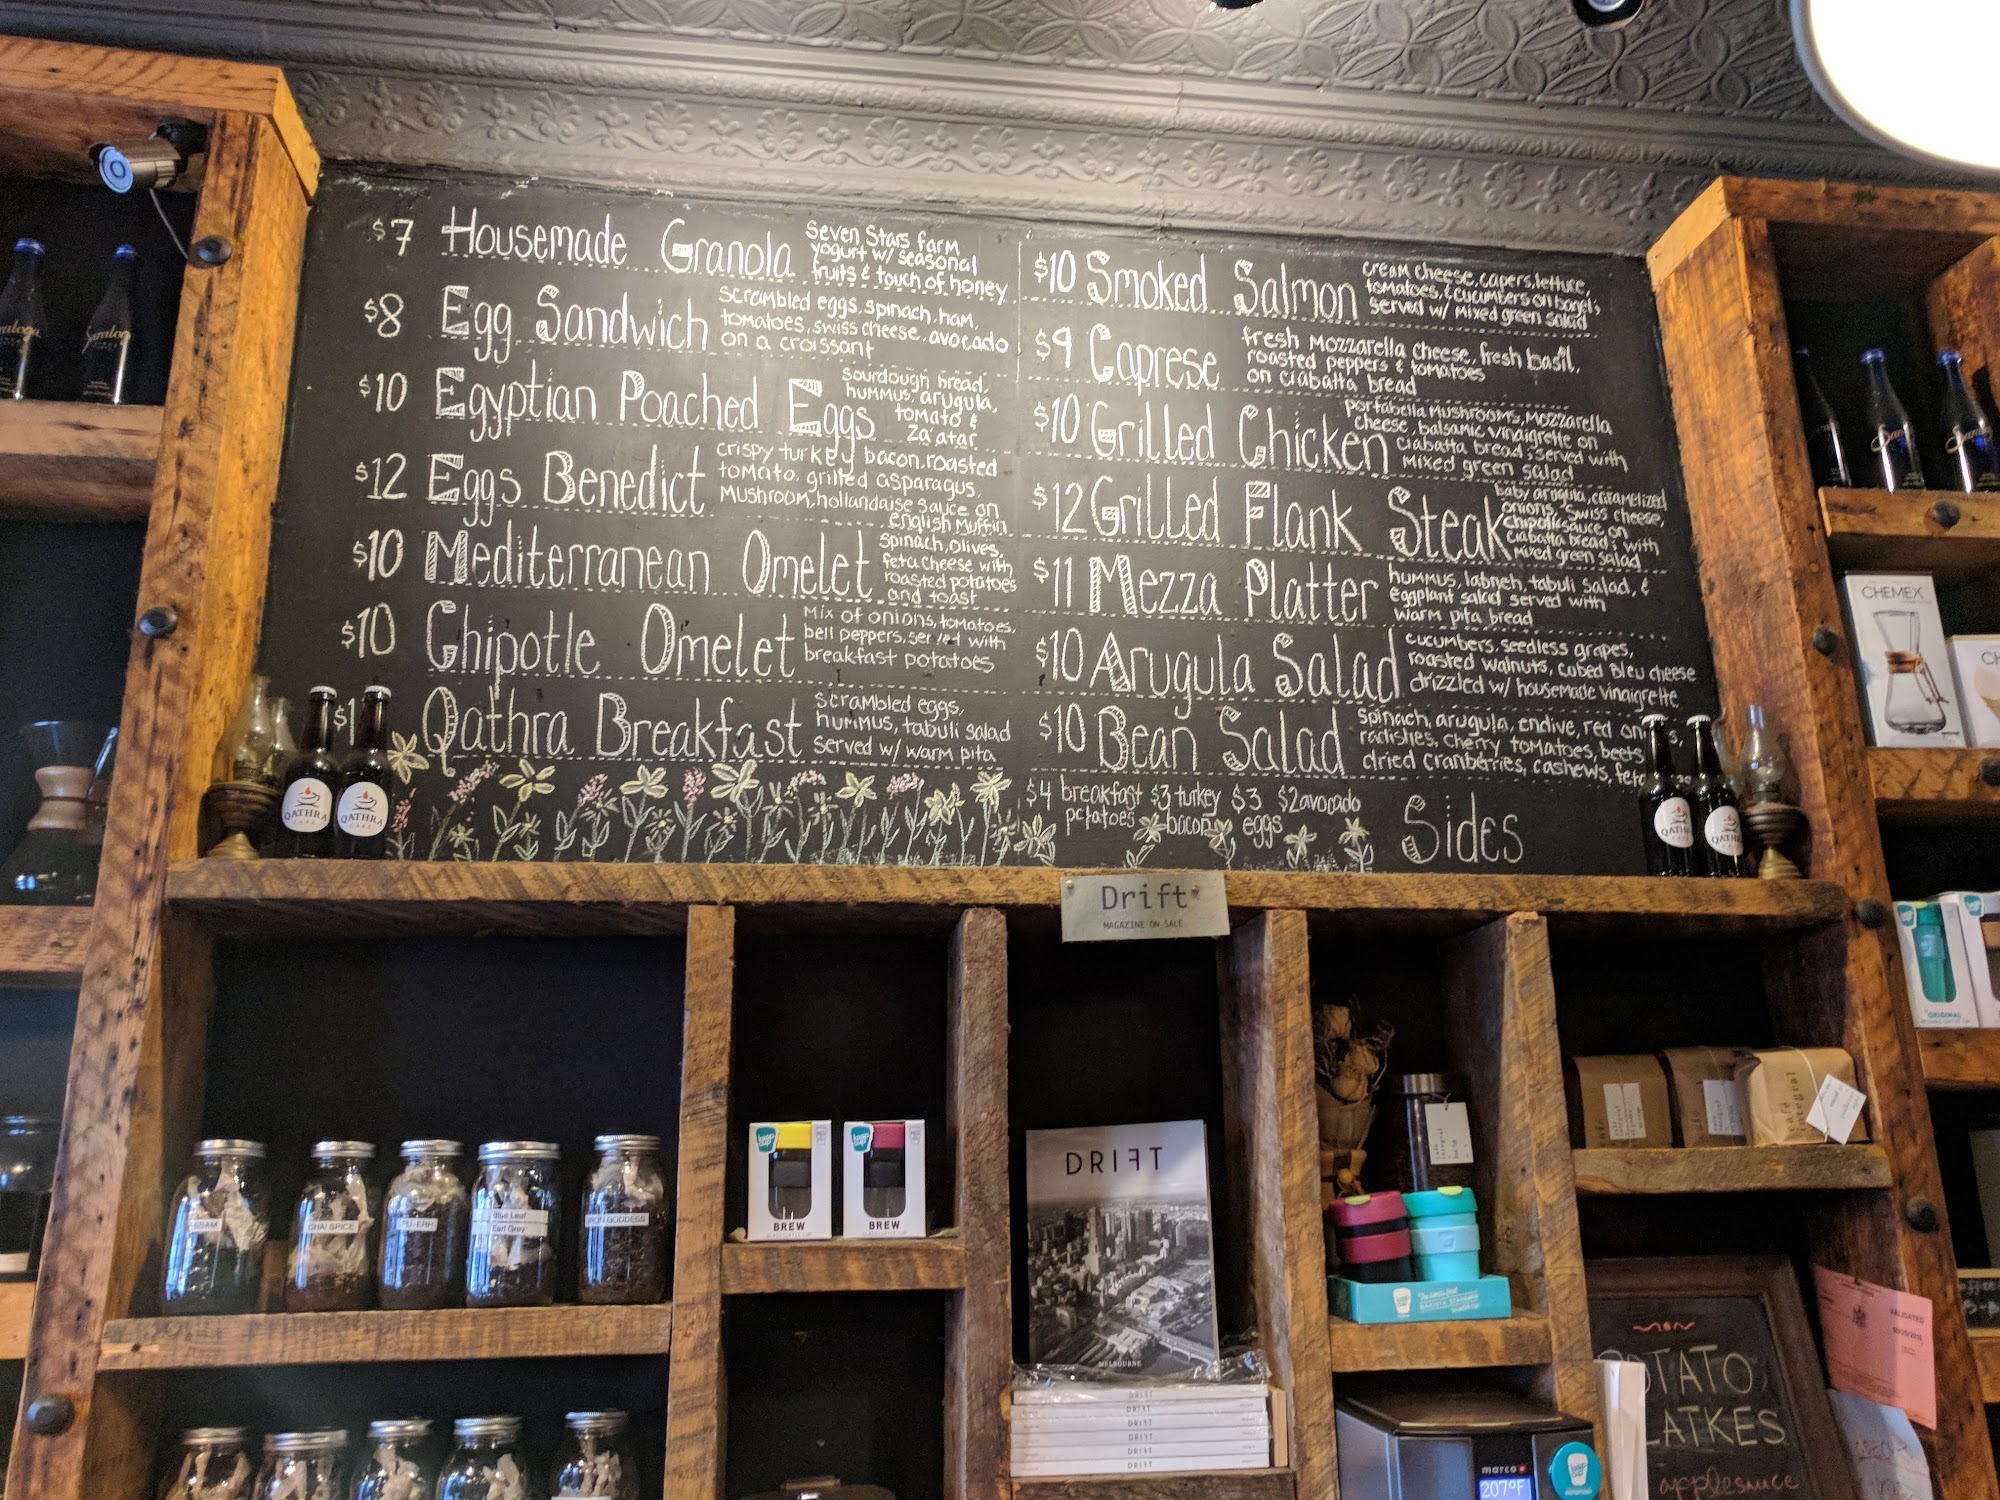 $7 Housemade Granola
Seven Stars farm
yogurt w/ seasonal
fruits & touch of honey
$8 Egg Sandwich
scrambled eggs, spinach, ham,
tomatoes, swiss cheese, avocado
on a croissant
$10 Egyptian Poached Eggs
sourdough bread,
hummus, arugula,
tomato &
za'atar
$12 Eggs Benedict
crispy turkey bacon, roasted
tomato, grilled asparagus,
mushroom, hollandaise sauce on
english muffin
$10 Mediterranean Omelet
spinach, olives,
feta cheese with
roasted potatoes
and toast
$10 Chipotle Omelet
Mix of onions, tomatoes,
bell peppers, served with
breakfast potatoes
$1 Qathra Breakfast
scrambled eggs,
hummus, tabuli salad
served w/ warm pita
$10 Smoked Salmon
cream cheese, capers, lettuce,
tomatoes, & cucumbers on bagel;
served w/ mixed green salad
$9 Caprese
fresh mozzarella cheese, fresh basil,
roasted peppers & tomatoes
on ciabatta bread
$10 Grilled Chicken
portabella mushrooms, mozzarella
cheese, balsamic vinaigrette on
ciabatta bread; served with
mixed green salad
$12 Grilled Flank Steak
baby arugula, carmelized
onions, swiss cheese,
chipotle sauce on
ciabatta bread; with
mixed green salad
$11 Mezza Platter
hummus, labneh, tabuli salad, &
eggplant salad served with
warm pita bread
$10 Arugula Salad
cucumbers, seedless grapes,
roasted walnuts, cubed bleu cheese
drizzled w/ housemade vinaigrette
$10 Bean Salad
spinach, arugula, endive, red
radishes, cherry tomatoes, beets
dried cranberries, cashews,
$4 breakfast $3 turkey $3 $2 avocado
potatoes bacon eggs
Sides
QATHRA
CAFE
QATHRA
CAFE
QATHRA
QATHRA
Saratoga
CHEMEX
CH
Drift
MAGAZINE ON SALE
ORIGINAL
ASSAM
CHAI SPICE
PU-ERH
Blue Leaf
Earl Grey
IRON GODDESS
keep
cup
BREW
keep
cup
BREW
DRIFT
MELBOURNE
DRIFT
DRIFT
DRIFT
DRIFT
DRIFT
DRIFT
BARISTA STANDARD
café
integral
VALIDATED
POTATO
LATKES
applesauce
marco
207°F